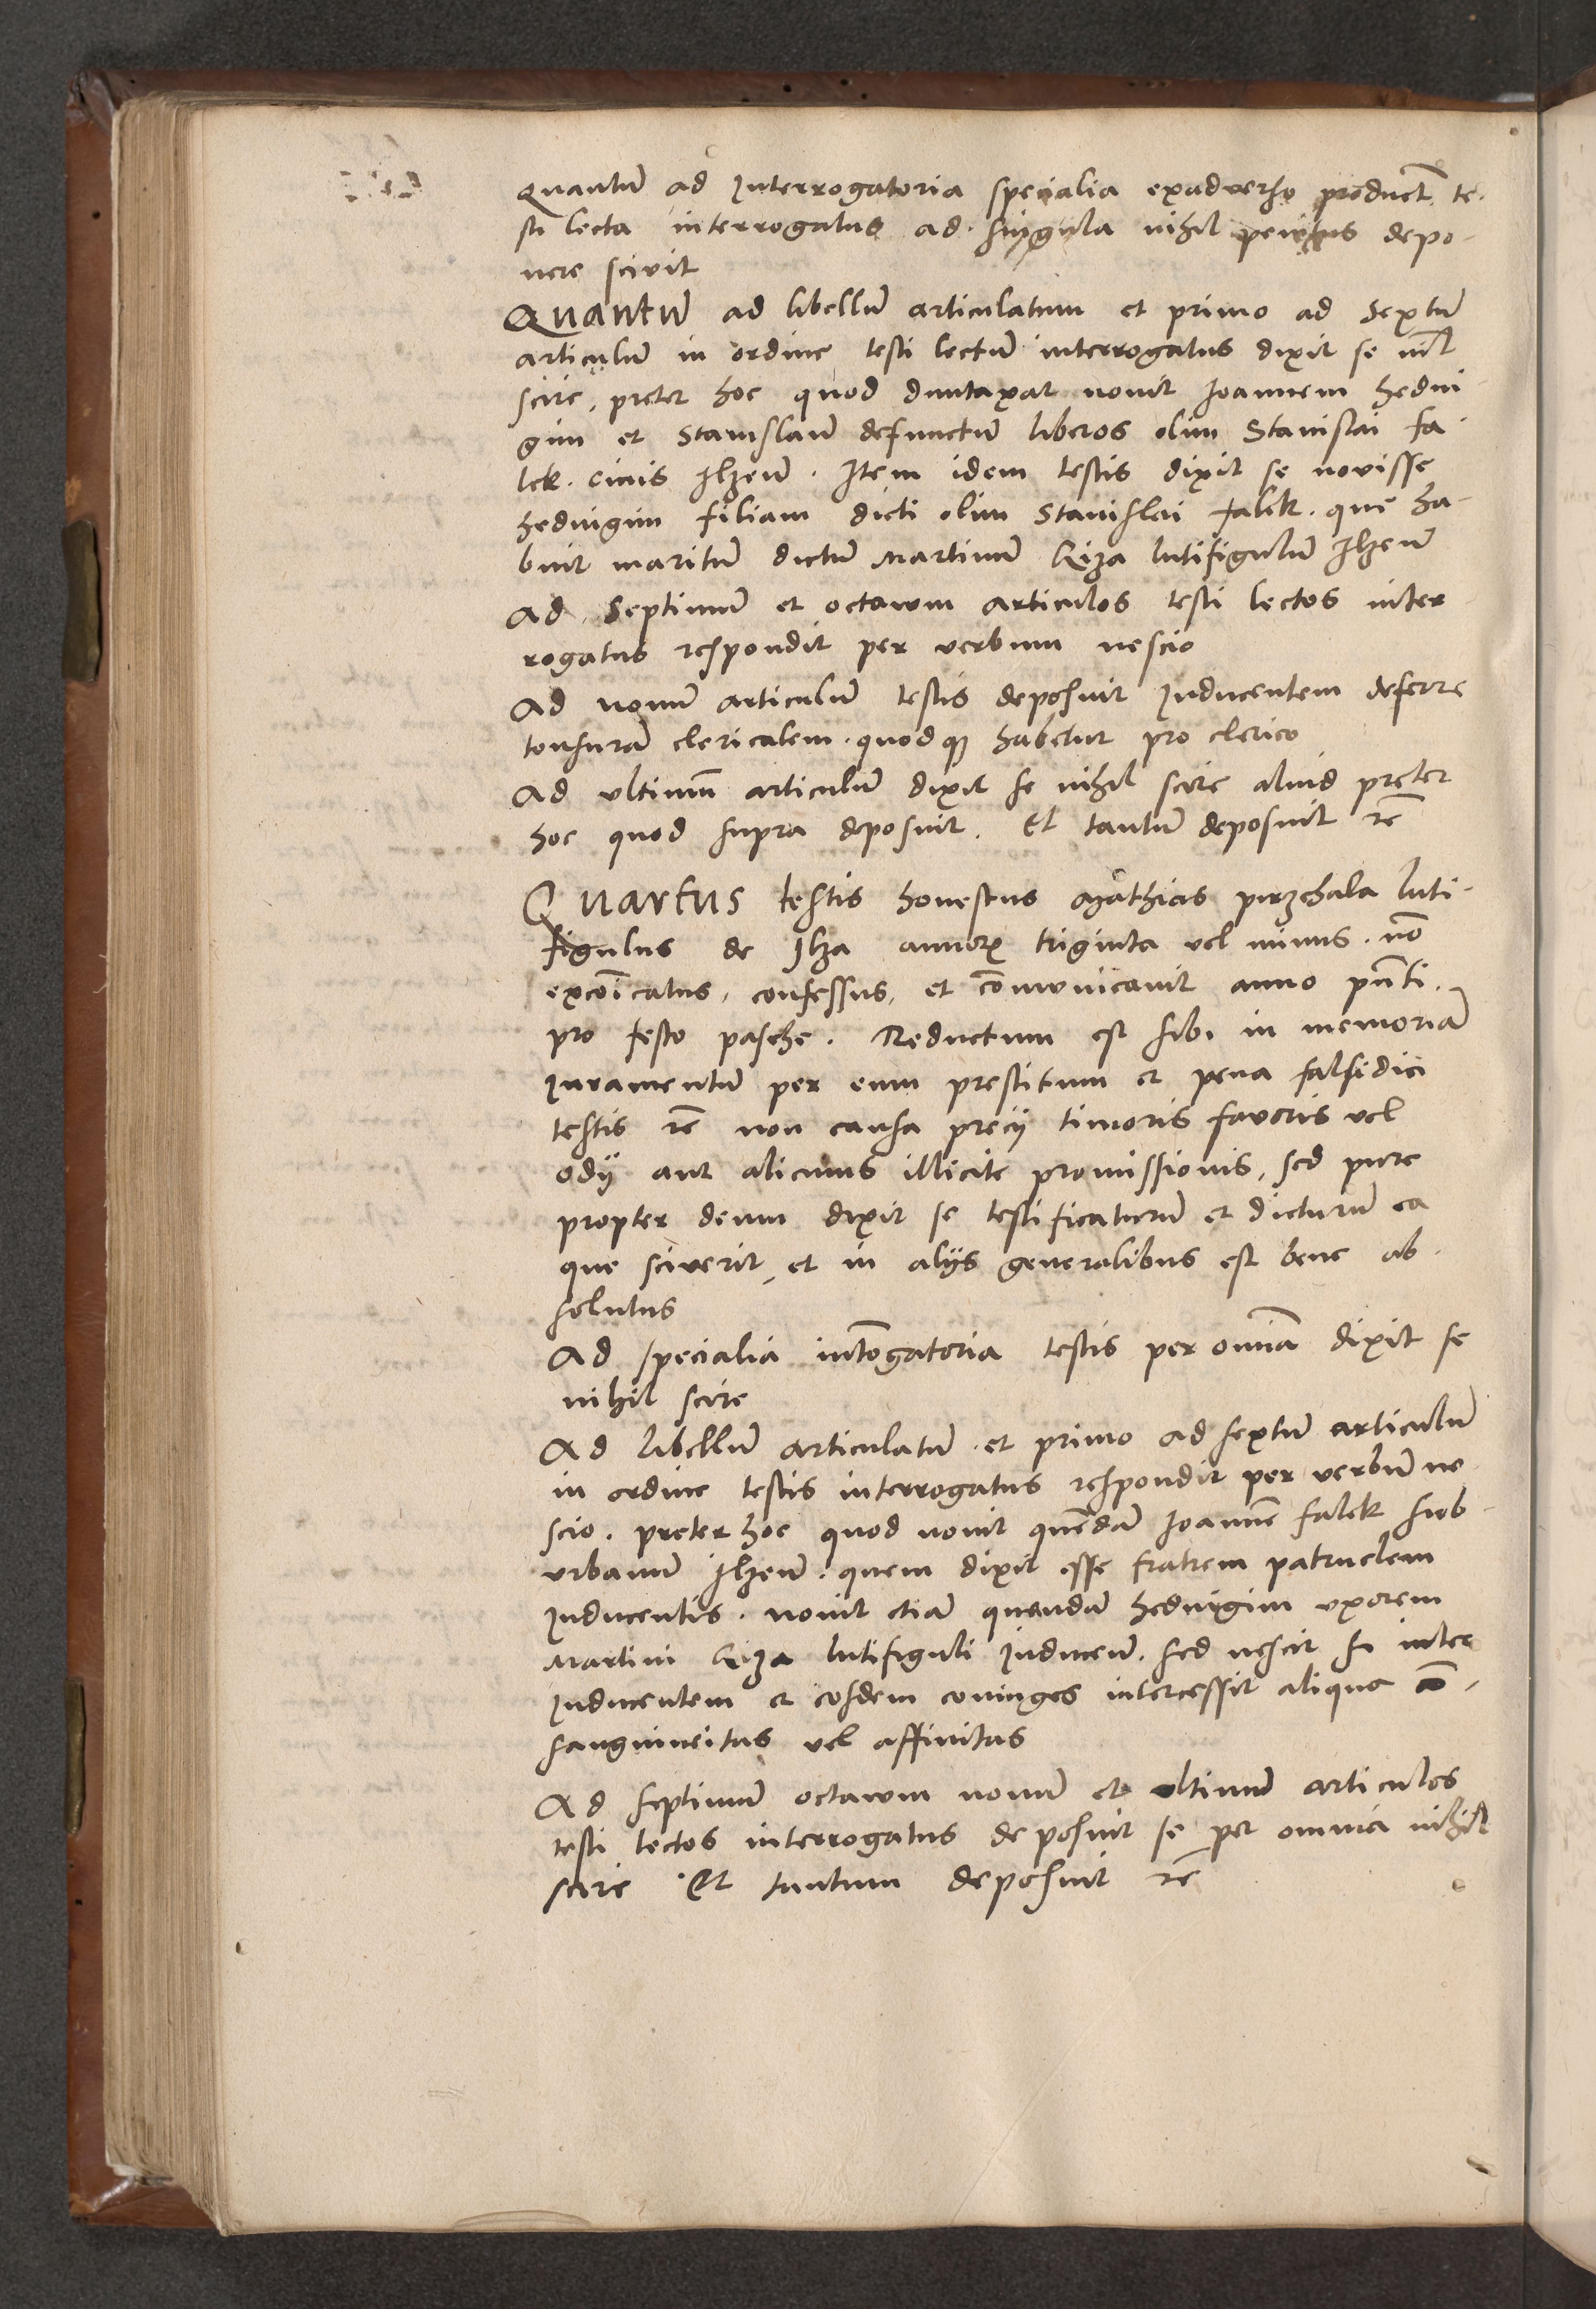 Quantũ ad Interrogatoria specialia exadverso product̃ te-
sti lecta interrogatus ad singula nihil penitus depo-
nere scivit
Quantũ ad libellũ articulatum et primo ad Sextũ
articulũ in ordine testi lectũ interrogatus dixit se nil̃
scire, preter hoc quod duntaxat novit Joannem hedvi-
gim et Stanislaũ defunctũ liberos olim Stanislai Fa-
lek. civis Ilzeñ. Item idem testis dixit se novisse
hedvigim filiam dicti olim Stanislai Falek. que ha-
buit maritũ dictũ Martinũ Kiza lutifigulũ Ilzeñ
Ad Septimũ et octavum articulos testi lectos inter
rogatus respondit per verbum nescio
Ad nonũ articulũ testis deposuit Inducentem deferre
tonsurã clericalem. quodq; habetur pro clerico
Ad ultimũ articulũ dixit se nihil scire aliud preter
hoc quod supra deposuit. Et tantũ deposuit rc̃
Quartus testis honestus Mathias pirzchala luti-
figulus de Ilza annoꝝ triginta vel minus. nõ
excoĩcatus, confessus, et cõmunicavit anno pñti.
pro festo pasche. Reductum est sibi in memoriã
Iuramentũ per eum prestitum et pena falsidici
testis rc̃ non causa precij timoris favoris vel
odij aut alicuius illicite promissionis, sed pure
propter deum dixit se testificaturũ et dicturũ ea
que sciverit, et in alijs generalibus est bene ab-
solutus
Ad specialia intõgatoria testis per omĩa dixit se
nihil scire
Ad libellũ articulatũ. et primo ad sextũ articulũ
in ordine testis interrogatus respondit per verbũ ne
scio. preter hoc quod novit quendã Joannẽ falek sub
urbanũ Ilzeñ. quem dixit esse fratrem patruelem
Inducentis. novit etiã quandã hedvigim uxorem
Martini Kiza lutifiguli Inducen̄. sed nescit si inter
Inducentem et eosdem coniuges intercessit aliqua cõ-
sanguineitas vel affinitas
Ad septimũ octavum nonũ et ultimũ articulos
testi lectos interrogatus deposuit se per omnia nihil
scire Et tantum deposuit rc̃